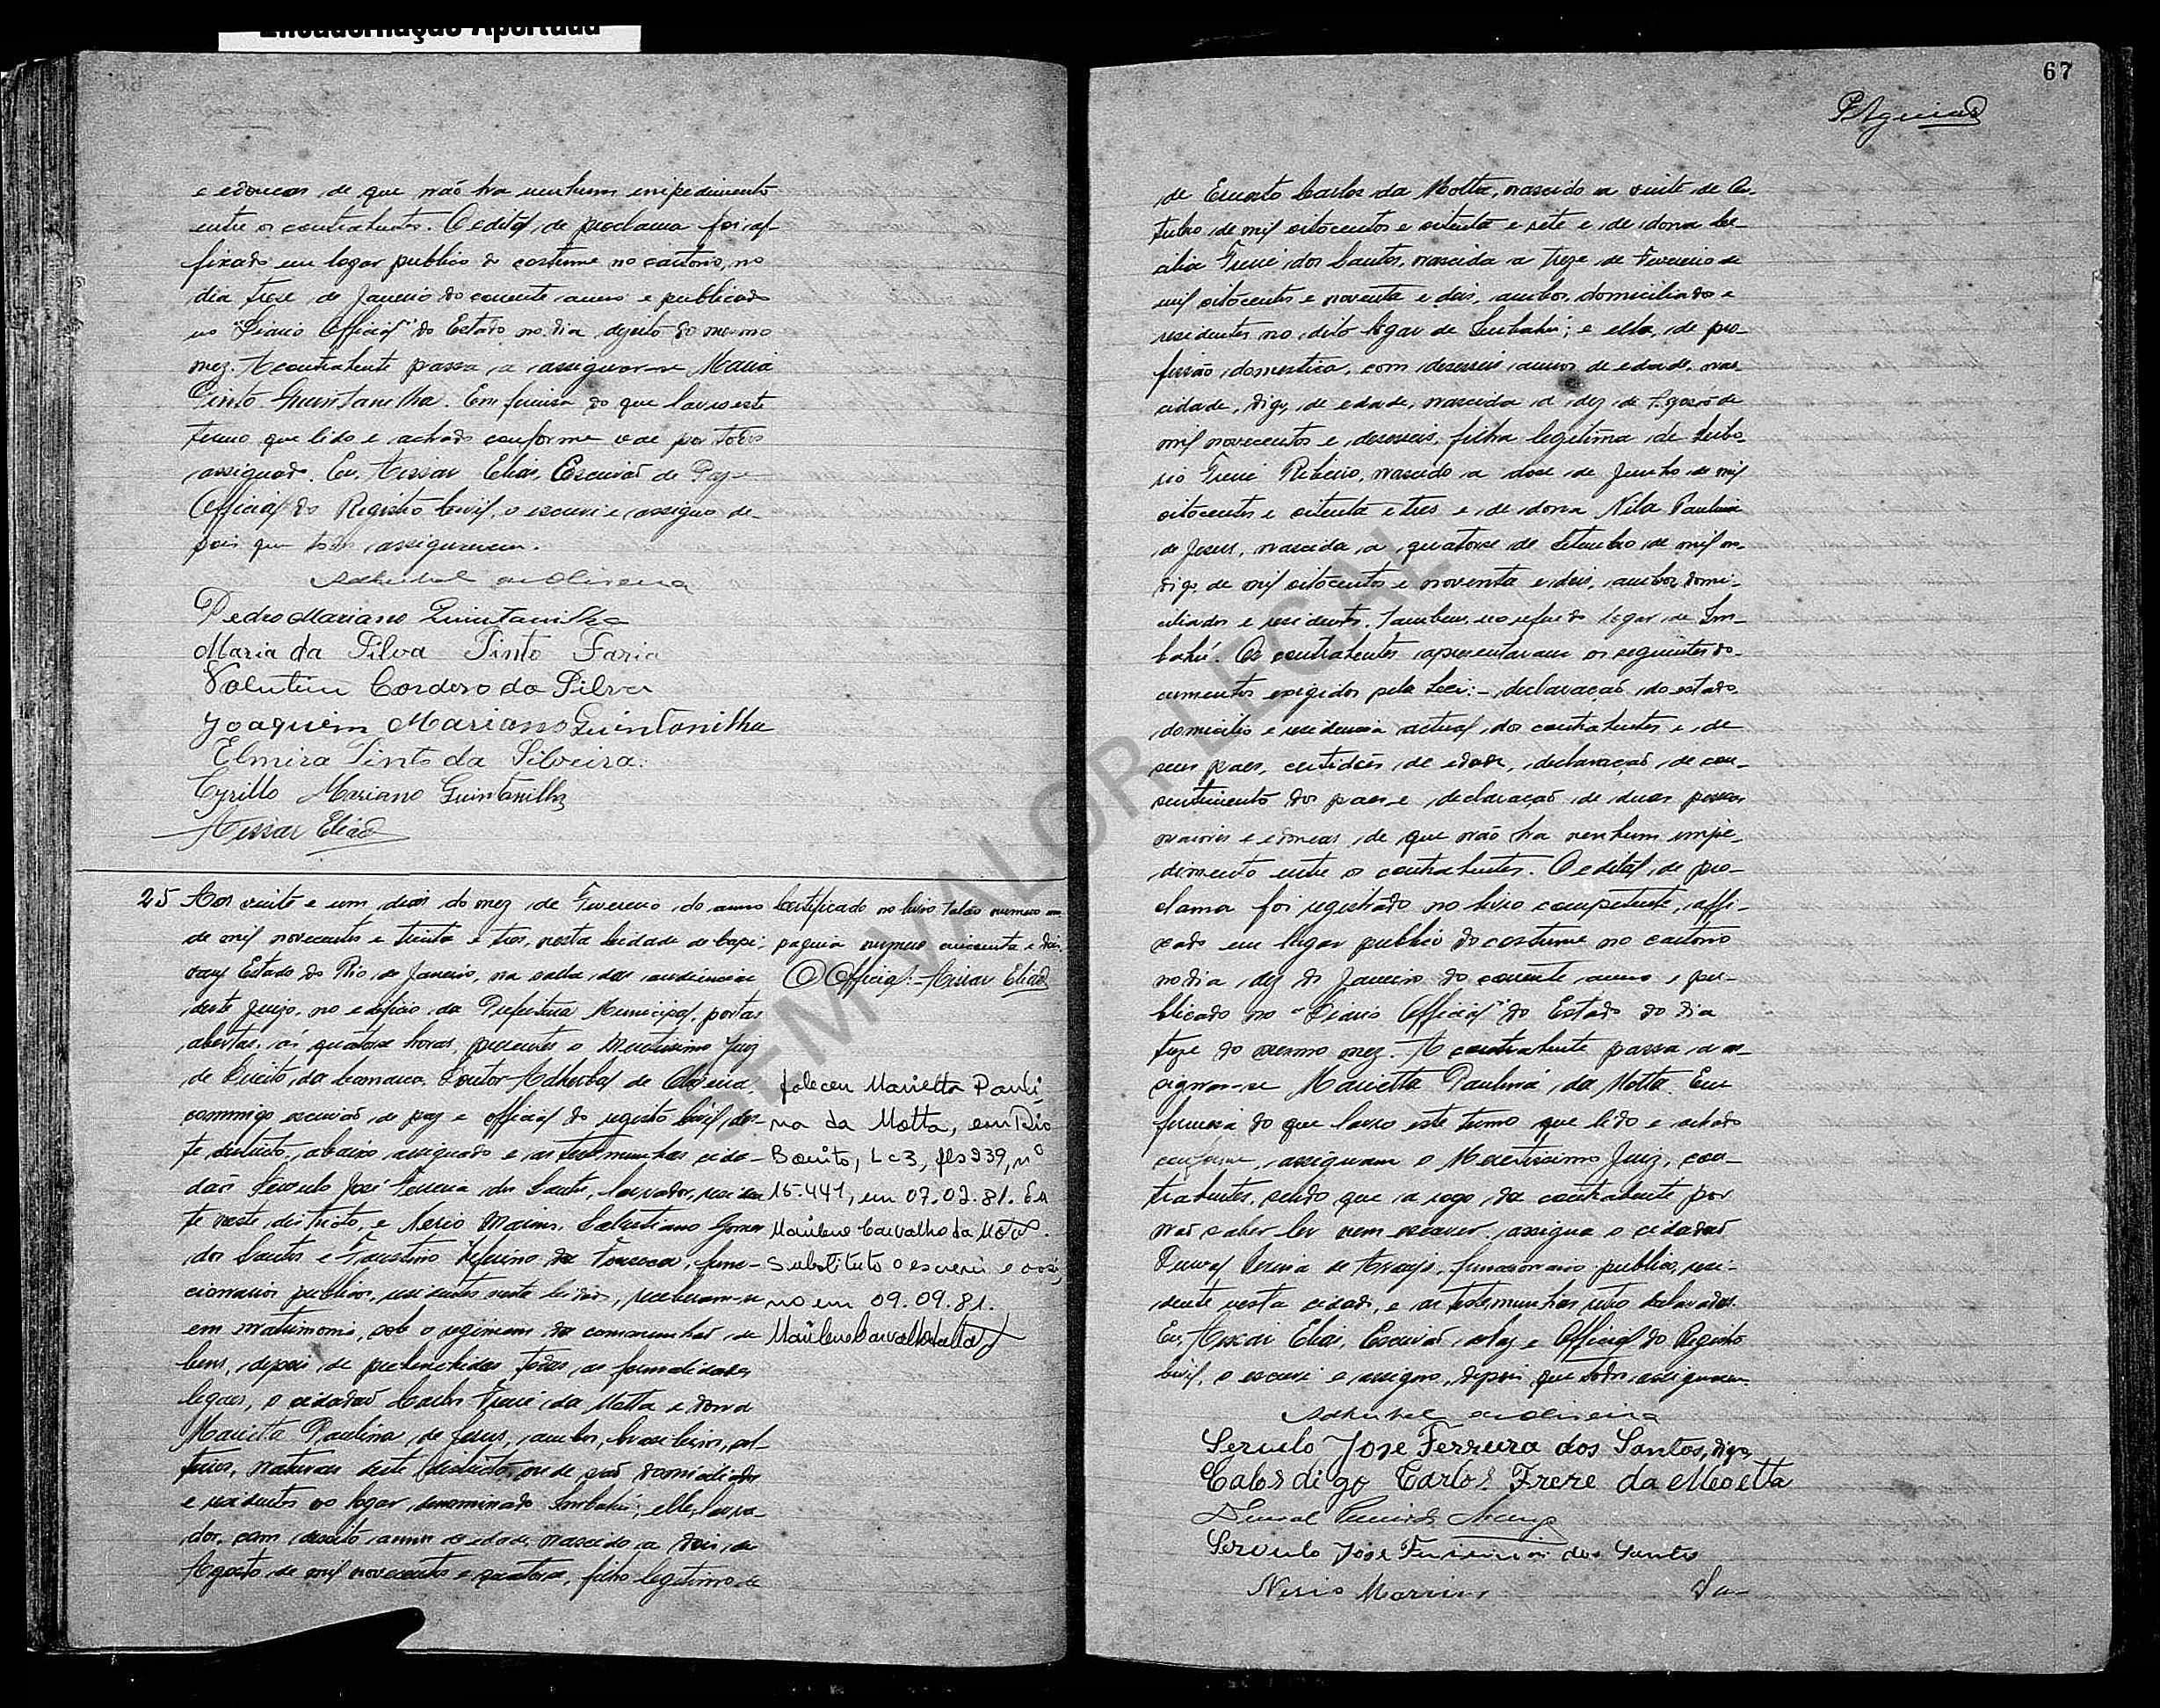 Encadernação Apertada
e edoneas de que não ha nenhum impedimento
entre os contrahentes. O edital de proclama foi af-
fixado em logar publico do costume no cartorio, no
dia trese de Janeiro do corrente anno e publicado
no "Diario Official" do Estado no dia desoito do mesmo
mez. A contrahente passa a assignar-se Maria
Pinto Quintanilha. Em firmesa do que lavro este
termo que lido e achado conforme vae por todos
assignado. Eu, Assiar Elias, Escrivão de Paz e
Official do Registro Civil, o escrevi e assigno de-
pois que todos assignarem.
Adherbal de Oliveira
Pedro Mariano Quintanilha
Maria da Silva Pinto Faria
Valentim Cordero da Silva
Joaquim Mariano Quintanilha
Elmira Pinto da Silveira.
Cyrillo Mariano Quintanilha
Assiar Elias
25 Aos vinte e um dias do mez de Fevereiro do anno
de mil novecentos e trinta e tres, nesta Cidade de Capi-
vary Estado do Rio de Janeiro, na salla das audiencias
deste Juizo, no edificio da Prefeitura Municipal, portas
abertas, ás quatorse horas, presentes o Meretissimo Juiz
de Direito da Comarca, Doutor Adherbal de Oliveira
commigo escrivão de paz e official do registro Civil des-
te districto, abaixo assignado e as testemunhas cida-
dãos Servulo José Ferreira dos Santos, lavrador, residen
te neste districto, e Nerio Marins, Sebastiano Gomes
dos Santos e Faustino Zeferino da Fonseca, func-
cionarios publicos, residentes nesta cidade, receberam-se
em matrimonio, sob o regimem da communhão de
bens, depois de prehenchidas todas as formalidades
legaes, o cidadão Carlos Freire da Motta e dona
Marietta Paulina de Jesus, ambos, brasileiros, sol-
teiros, naturaes deste districto onde são domiciliados
e residentes no logar denominado Imbahú; elle, lavra-
dor, com desoito annos de edade, nascido a dois de
Agosto de mil novecentos e quatorse, filho legitimo de
Certificado no livro talão numero um
pagina numero cincoenta e dois.
O Official:- Assiar Elias
faleceu Marietta Pauli-
na da Motta, em Rio
Bonito, L c 3, fls 239, nº
15.441, em 07.02.81. Eu
Marilene Carvalho da Mota.
Substituto o escrevi e assi-
no em 09.09.81.
67
de Ernesto Carlos da Motta, nascido a vinte de Ou-
tubro de mil oitocentos e oitenta e sete e de dona Ce-
cilia Freire dos Santos, nascida a treze de Fevereiro de
mil oitocentos e noventa e dois, ambos, domiciliados e
residentes no dito logar de Imbahú; e ella, de pro-
fissão domestica, com deseseis annos de edade, nas
cidade, digo, de edade, nascida a dez de Agosto de
mil novecentos e deseseis, filha legitima de
Freire Ribeiro, nascido a dose de Junho de mil
oitocentos e oitenta e tres e de dona Nila Paulina
de Jesus, nascida a quatorse de Setembro de mil no-
digo, de mil oitocentos e noventa e dois, ambos domi-
ciliados e residentes, tambem, no referido logar de Im-
bahú. Os contrahentes apresentaram os seguintes do-
cumentos exigidos pela Lei:- declaração do estado,
domicilio e residencia actual dos contrahentes e de
seus paes, certidões de edade, declaração de con-
sentimento dos paes e declaração de duas pessoas
maiores e edoneas de que não ha nenhum impe-
dimento entre os contrahentes. O edital de pro-
clama foi registrado no livro competente, affi-
xado em logar publico do costume no cartorio
no dia dez de Janeiro do corrente anno e pu-
blicado no "Diario Official" do Estado do dia
treze do mesmo mez. A contrahente passa a as-
signar-se Marietta Paulina da Motta. Em
firmesa do que lavro este termo que lido e achado
conforme, assignam o Meretissimo Juiz, con-
trahentes, sendo que a rogo da contrahente por
não saber ler nem escrever, assigna o cidadão
Durval de Araujo, funccionario publico, resi-
dente nesta cidade, e as testemunhas retro declaradas.
Eu, Assiar Elias, Escrivão de Paz e Official do Registro
Civil, o escrevi e assigno, depois que todos assignarem.
Adherbal de Oliveira
Serculo Jose Ferreira dos Santos, digo,
Calos digo Carlos Frere da Meoetta
Servulo José Ferreira dos Santos
Nerio Marins
SEM VALOR LEGAL